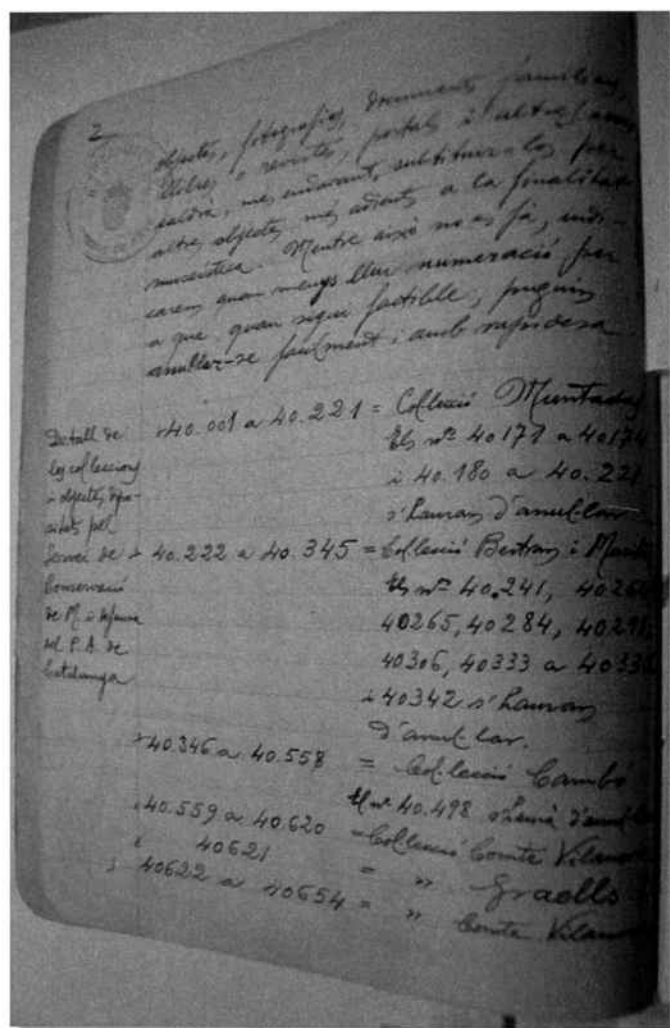 2
objectes, fotografies, documents familiars,
llibres o revistes, portals i
caldrà, més endavant, substituir-los per
altres objectes més adients a la finalitat
museística. Mentre això no es fa, indi-
carem quan menys llur numeració per
a que quan sigui factible, puguin
anul·lar-se facilment i amb rapidesa
Detall de
les col·leccions
i objectes dipo-
sitats pel
Servei de
Conservació
de M. i defensa
del P. A. de
Catalunya
40.001 a 40.221 = Col·lecció Muntadas
Els nº 40171 a 40174
i 40.180 a 40.221
s'hauran d'anul·lar
40.222 a 40.345 = Col·lecció Bertran i
Els nº 40.241,
40265, 40284,
40306, 40333 a
i 40342 s'hauran
d'anul·lar.
40.346 a 40.558 = Col·lecció Cambó
El nº 40.498 s'haurà d'anul·lar
40.559 a 40.620 = Col·lecció Comte
40621 = " Graells
40622 a 40654 = " Comte